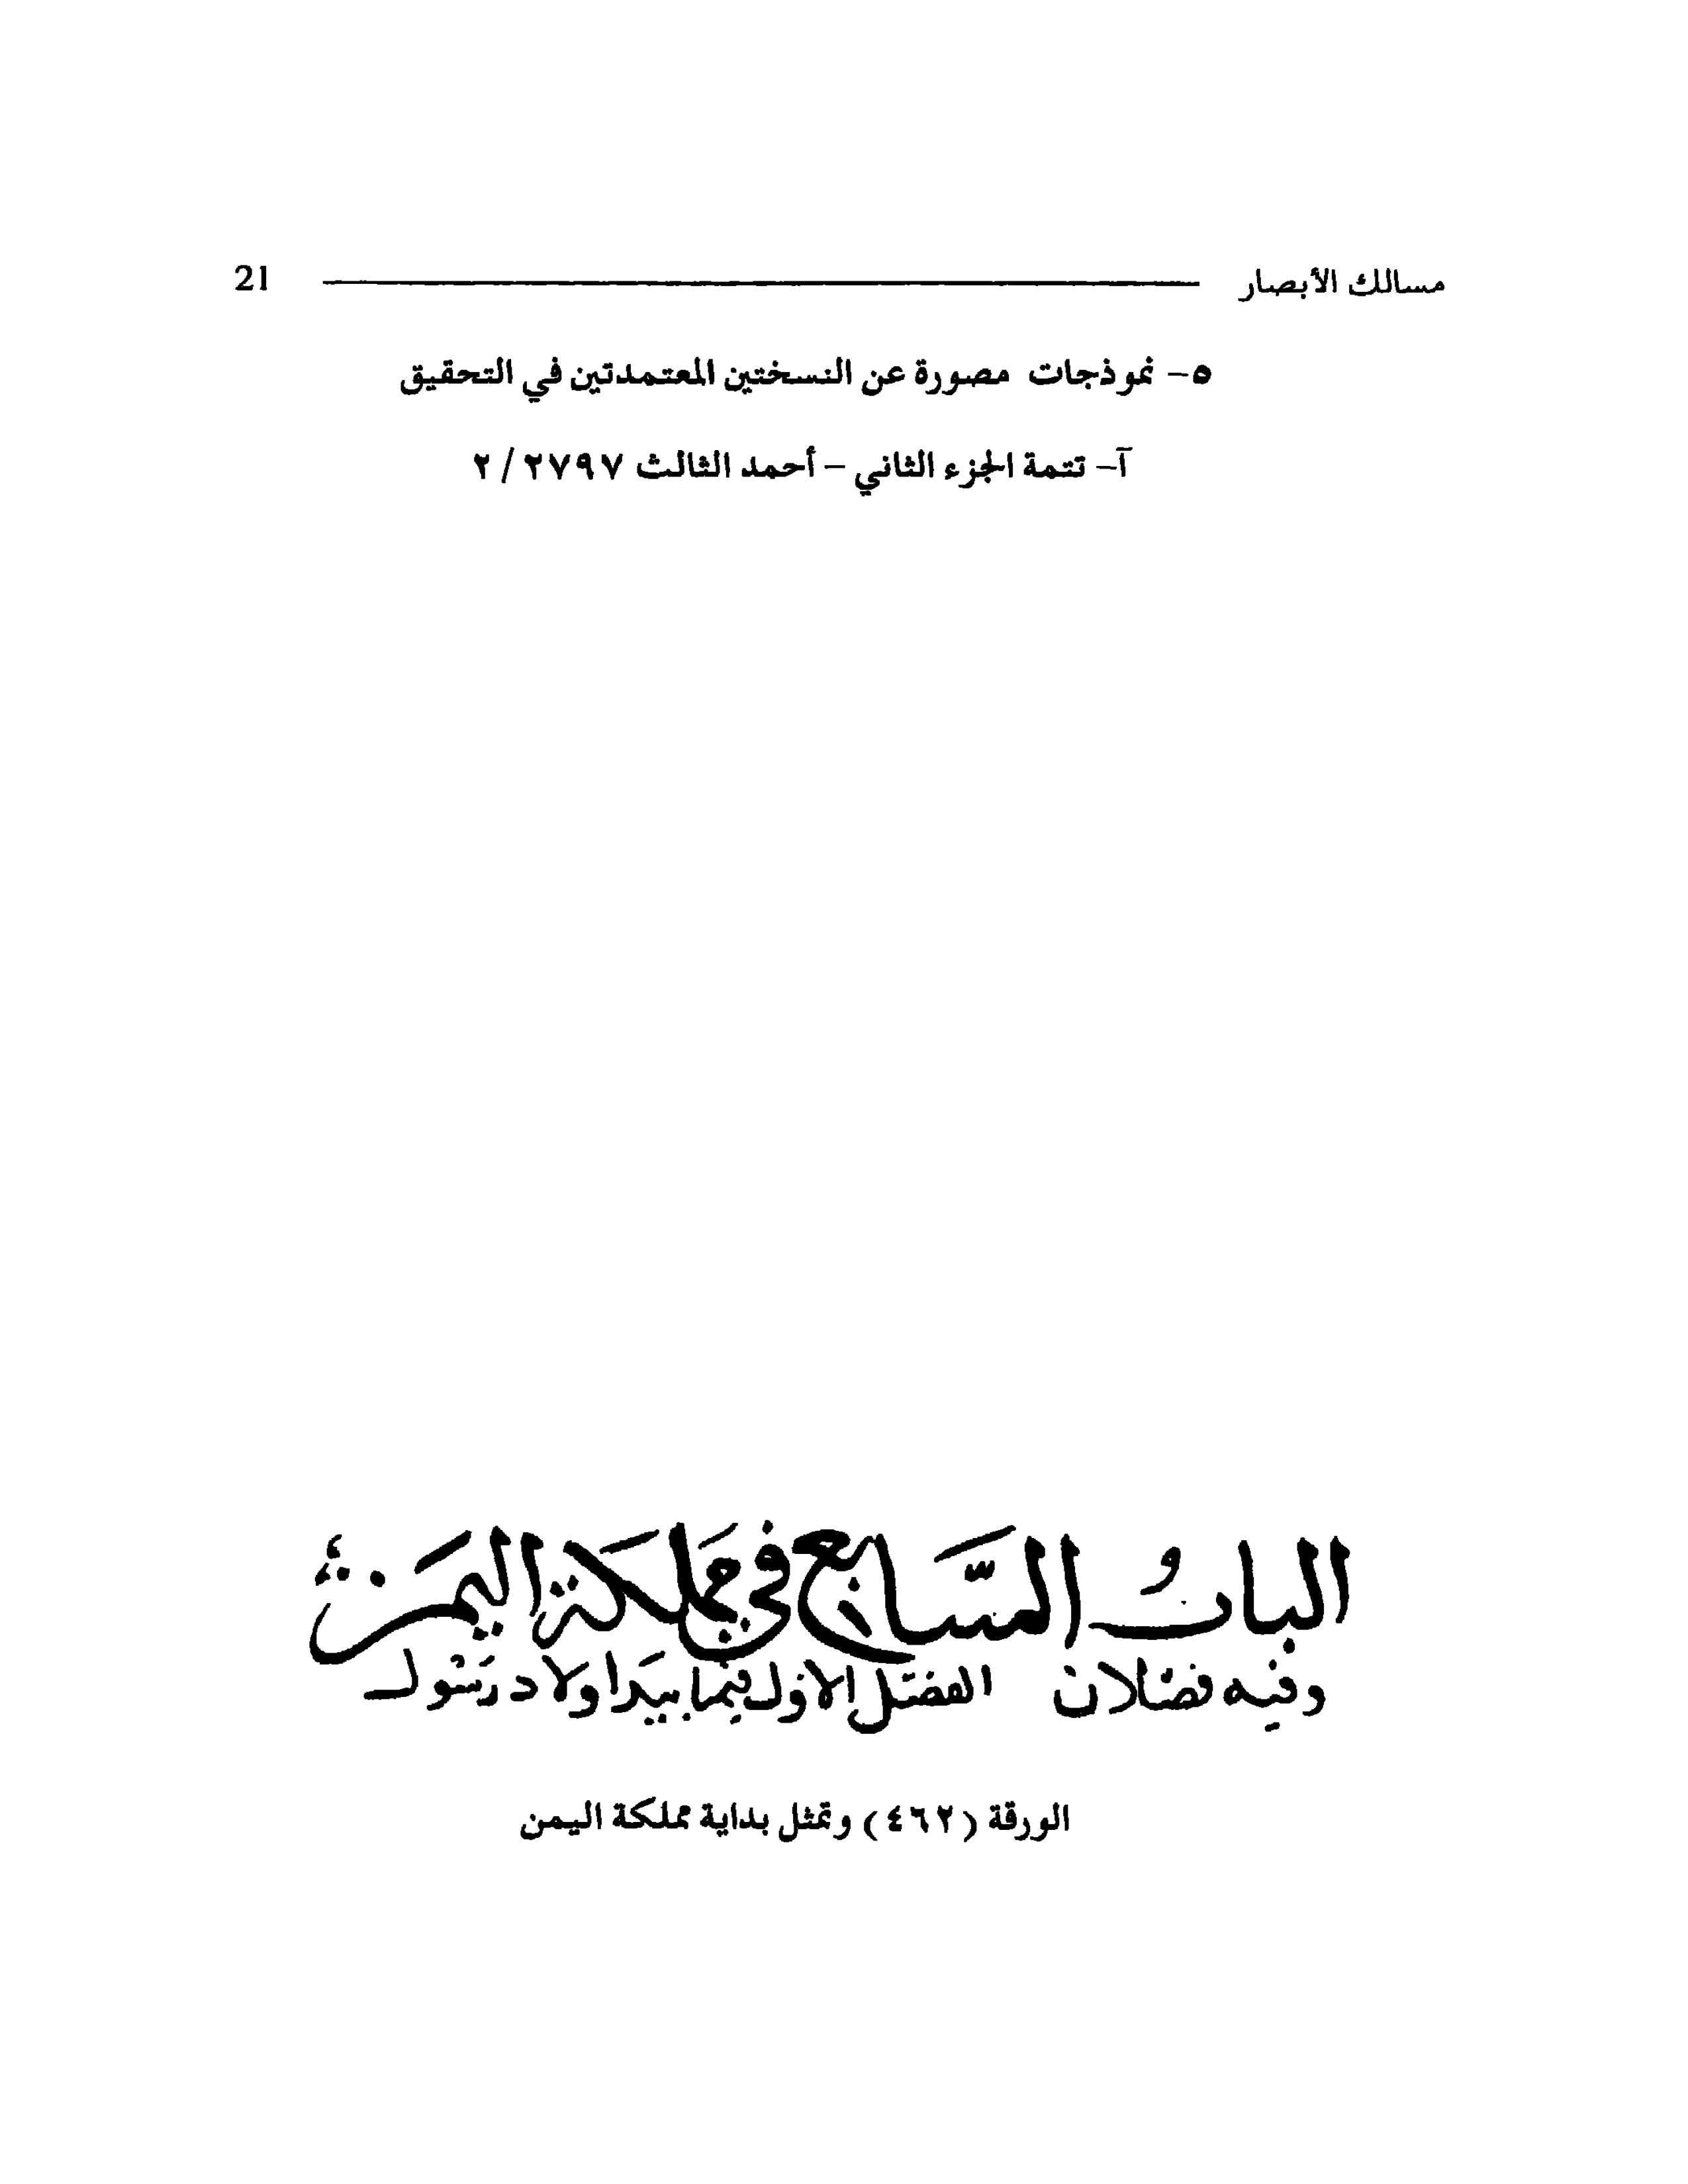 مسالك الأبصار 21
٥- نموذجات مصورة عن النسختين المعتمدتين في التحقيق
آ- تتمة الجزء الثاني - أحمد الثالث ٢٧٩٧ / ٢
البابُ السَّابع في مَملكة اليمَن
وفيه فصَلان الفصَل الاول فيما بيدا ولاد رَسُول
الورقة (٤٦٢) وتمثل بداية مملكة اليمن